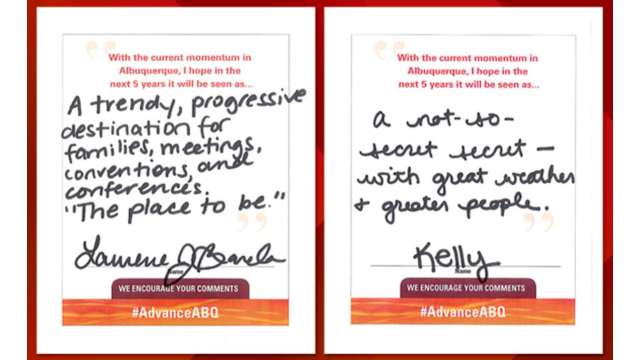 With the current momentum in
Albuquerque, I hope in the
next 5 years it will be seen as...
A trendy, progressive
destination for
families, meetings,
conventions, and
conferences.
"The place to be."
Name
WE ENCOURAGE YOUR COMMENTS
#AdvanceABQ
With the current momentum in
Albuquerque, I hope in the
next 5 years it will be seen as...
a not-so-
secret secret —
with great weather
+ greater people.
Kelly
Name
WE ENCOURAGE YOUR COMMENTS
#AdvanceABQ